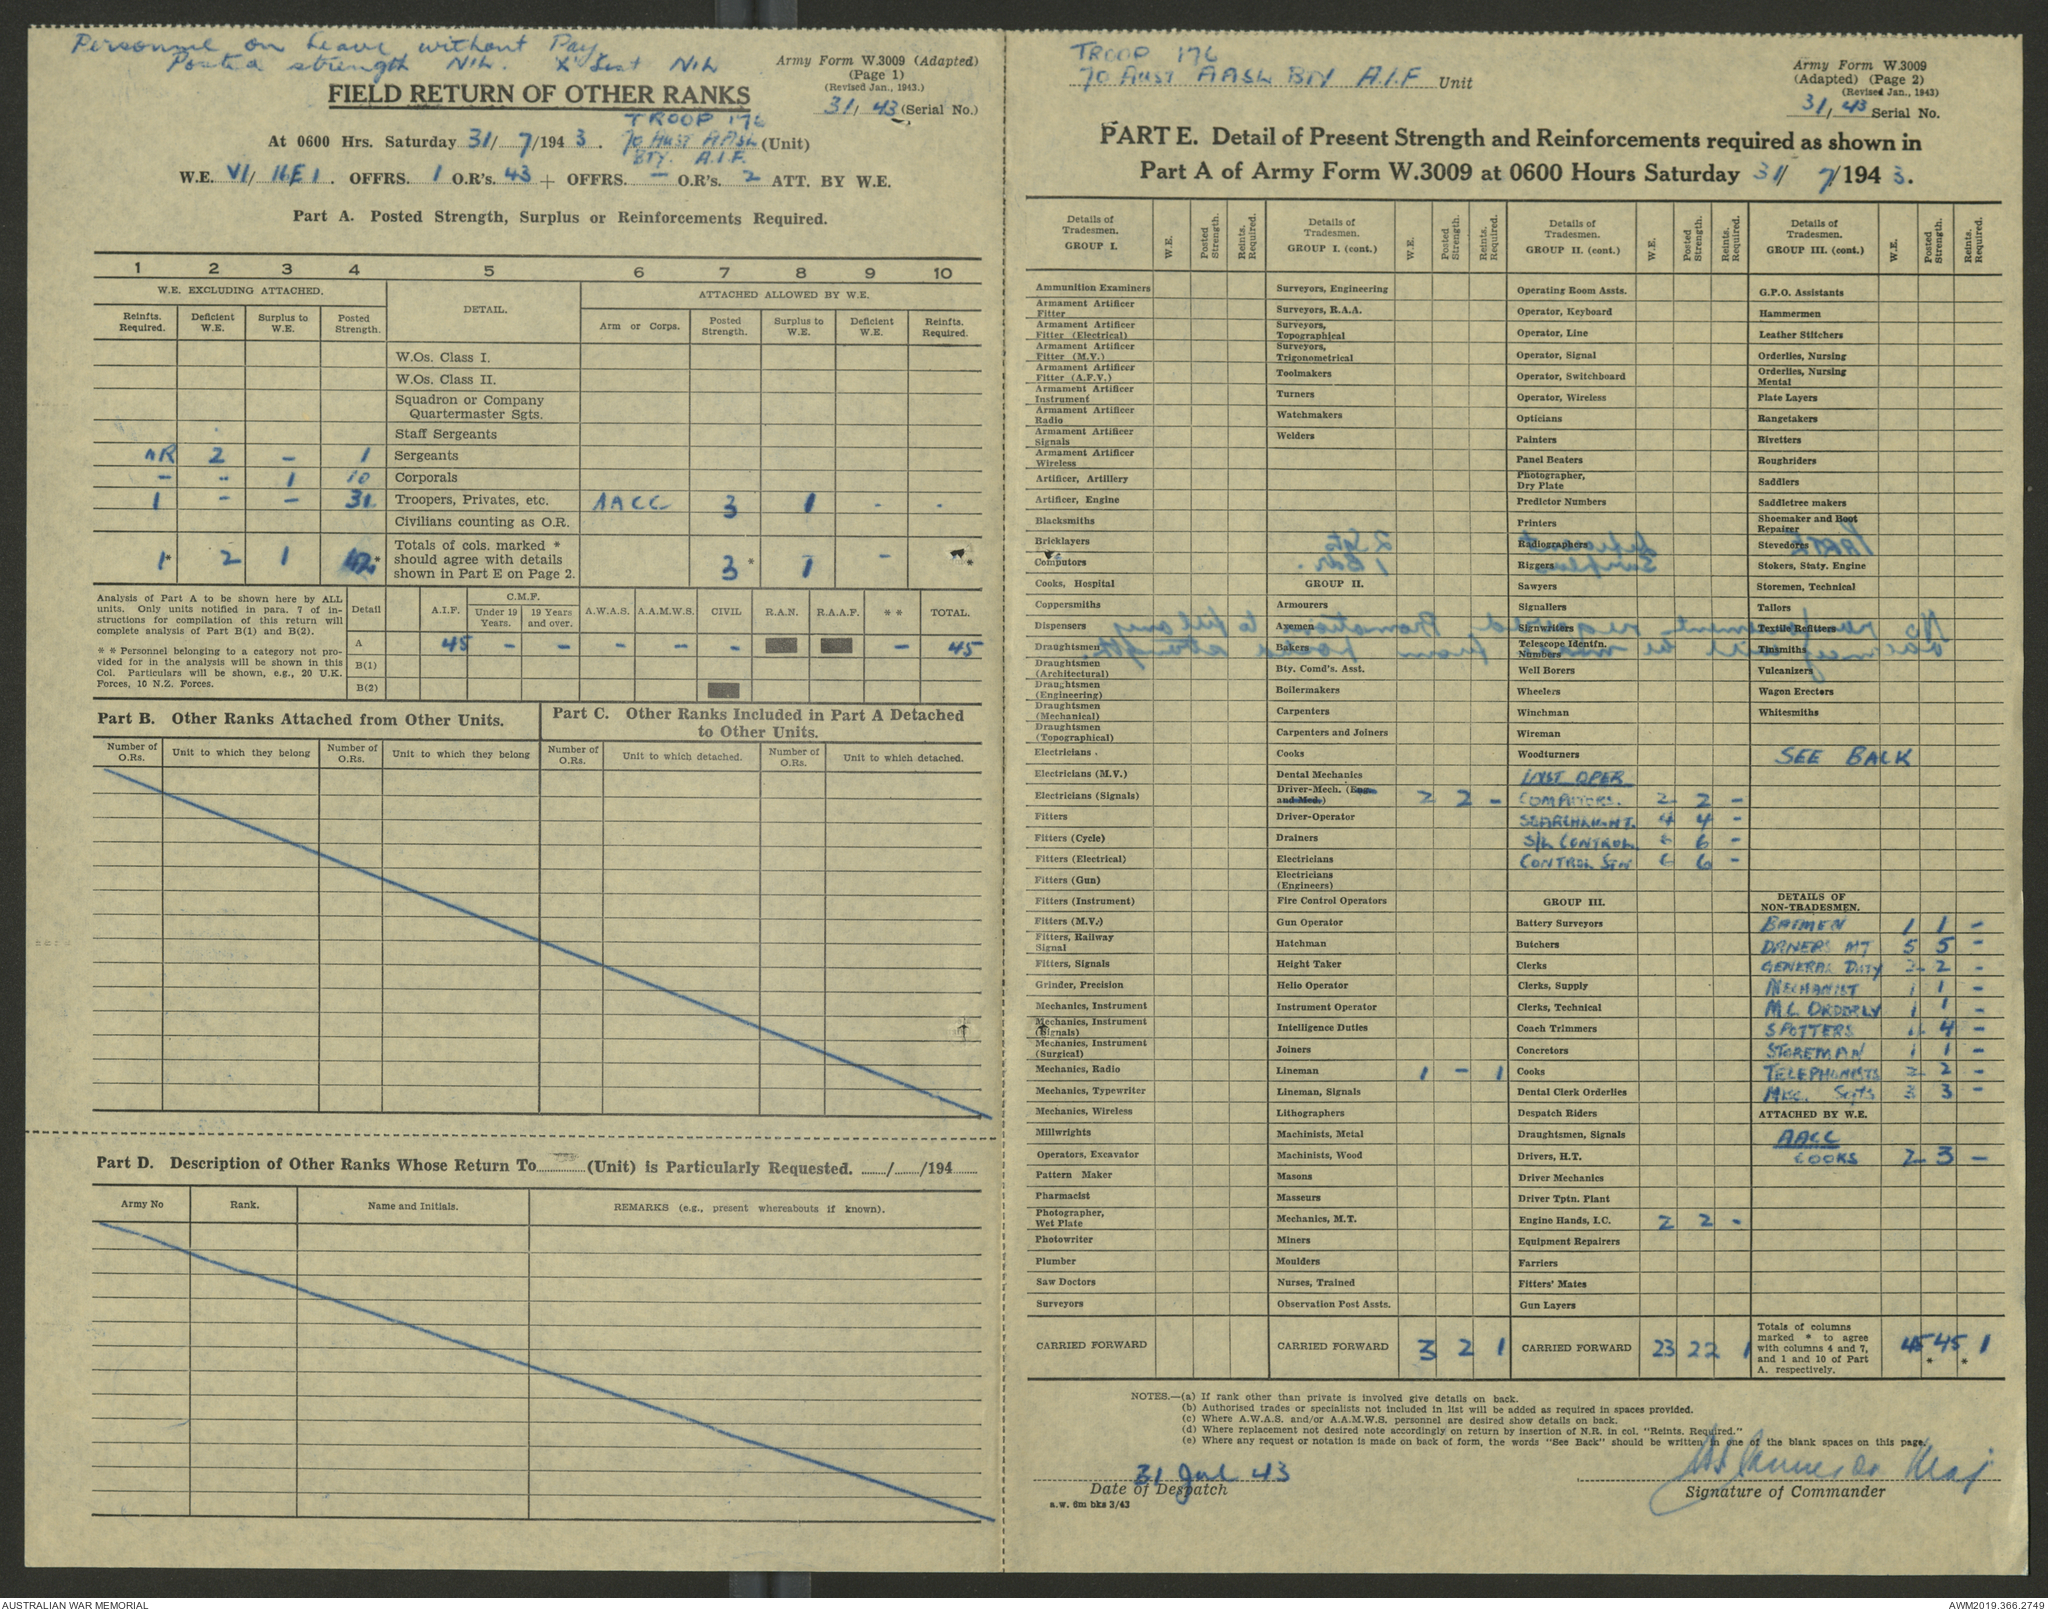 Personnel on Leave without Pay
Posted strength NIL. "X" List NIL
Army Form W.3009 (Adapted)
(Page 1)
(Revised Jan., 1943.)
31/43 (Serial No.)
FIELD RETURN OF OTHER RANKS
TROOP 176
At 0600 Hrs. Saturday 31/7/1943. 70 Aust AASL (Unit)
BTY. A.I.F.
W.E. VI/IIE1. OFFRS. 1 O.R's. 43 + OFFRS. — O.R's. 2 ATT. BY W.E.
Part A. Posted Strength, Surplus or Reinforcements Required.
1 2 3 4 5 6 7 8 9 10
W.E. EXCLUDING ATTACHED. DETAIL. ATTACHED ALLOWED BY W.E.
Reinfts. Required. Deficient W.E. Surplus to W.E. Posted Strength. Arm or Corps. Posted Strength. Surplus to W.E. Deficient W.E. Reinfts. Required.
W.Os. Class I.
W.Os. Class II.
Squadron or Company
Quartermaster Sgts.
Staff Sergeants
NR 2 — 1 Sergeants
— — 1 10 Corporals
1 — — 31 Troopers, Privates, etc. AACC 3 1 - -
Civilians counting as O.R.
1* 2 1 42* Totals of cols. marked * should agree with details shown in Part E on Page 2. 3* 1 - *
Analysis of Part A to be shown here by ALL units. Only units notified in para. 7 of instructions for compilation of this return will complete analysis of Part B(1) and B(2).
* * Personnel belonging to a category not provided for in the analysis will be shown in this Col. Particulars will be shown, e.g., 20 U.K. Forces, 10 N.Z. Forces.
Detail A.I.F. C.M.F. Under 19 Years. 19 Years and over. A.W.A.S. A.A.M.W.S. CIVIL R.A.N. R.A.A.F. * * TOTAL.
A 45 — — — — — — 45
B(1)
B(2)
Part B. Other Ranks Attached from Other Units.
Part C. Other Ranks Included in Part A Detached to Other Units.
Number of O.Rs. Unit to which they belong Number of O.Rs. Unit to which they belong Number of O.Rs. Unit to which detached. Number of O.Rs. Unit to which detached.
Part D. Description of Other Ranks Whose Return To (Unit) is Particularly Requested. ....../....../194......
Army No Rank. Name and Initials. REMARKS (e.g., present whereabouts if known).
TROOP 176
70 Aust AASL BTY A.I.F Unit
Army Form W.3009
(Adapted) (Page 2)
(Revised Jan., 1943)
31/43 Serial No.
PART E. Detail of Present Strength and Reinforcements required as shown in
Part A of Army Form W.3009 at 0600 Hours Saturday 31/7/1943.
Details of Tradesmen. GROUP I. W.E. Posted Strength. Reinfts. Required.
Ammunition Examiners
Armament Artificer Fitter
Armament Artificer Fitter (Electrical)
Armament Artificer Fitter (M.V.)
Armament Artificer Fitter (A.F.V.)
Armament Artificer Instrument
Armament Artificer Radio
Armament Artificer Signals
Armament Artificer Wireless
Artificer, Artillery
Artificer, Engine
Blacksmiths
Bricklayers
Computors
Cooks, Hospital
Coppersmiths
Dispensers
Draughtsmen
Draughtsmen (Architectural)
Draughtsmen (Engineering)
Draughtsmen (Mechanical)
Draughtsmen (Topographical)
Electricians
Electricians (M.V.)
Electricians (Signals)
Fitters
Fitters (Cycle)
Fitters (Electrical)
Fitters (Gun)
Fitters (Instrument)
Fitters (M.V.)
Fitters, Railway Signal
Fitters, Signals
Grinder, Precision
Mechanics, Instrument
Mechanics, Instrument (Signals)
Mechanics, Instrument (Surgical)
Mechanics, Radio
Mechanics, Typewriter
Mechanics, Wireless
Millwrights
Operators, Excavator
Pattern Maker
Pharmacist
Photographer, Wet Plate
Photowriter
Plumber
Saw Doctors
Surveyors
CARRIED FORWARD
Details of Tradesmen. GROUP I. (cont.) W.E. Posted Strength. Reinfts. Required.
Surveyors, Engineering
Surveyors, R.A.A.
Surveyors, Topographical
Surveyors, Trigonometrical
Toolmakers
Turners
Watchmakers
Welders
GROUP II.
Armourers
Axemen
Bakers
Bty. Comd's. Asst.
Boilermakers
Carpenters
Carpenters and Joiners
Cooks
Dental Mechanics
Driver-Mech. (Eng. and Med.) 2 2 —
Driver-Operator
Drainers
Electricians
Electricians (Engineers)
Fire Control Operators
Gun Operator
Hatchman
Height Taker
Helio Operator
Instrument Operator
Intelligence Duties
Joiners
Lineman 1 — 1
Lineman, Signals
Lithographers
Machinists, Metal
Machinists, Wood
Masons
Masseurs
Mechanics, M.T.
Miners
Moulders
Nurses, Trained
Observation Post Assts.
CARRIED FORWARD 3 2 1
Details of Tradesmen. GROUP II. (cont.) W.E. Posted Strength. Reinfts. Required.
Operating Room Assts.
Operator, Keyboard
Operator, Line
Operator, Signal
Operator, Switchboard
Operator, Wireless
Opticians
Painters
Panel Beaters
Photographer, Dry Plate
Predictor Numbers
Printers
Radiographers
Riggers
Sawyers
Signallers
Signwriters
Telescope Identfn. Numbers
Well Borers
Wheelers
Winchman
Wireman
Woodturners
INST OPER
COMPUTORS. 2 2 —
SEARCHLIGHT. 4 4 —
S/L CONTROL 6 6 —
CONTROL STN 6 6 —
GROUP III.
Battery Surveyors
Butchers
Clerks
Clerks, Supply
Clerks, Technical
Coach Trimmers
Concretors
Cooks
Dental Clerk Orderlies
Despatch Riders
Draughtsmen, Signals
Drivers, H.T.
Driver Mechanics
Driver Tptn. Plant
Engine Hands, I.C. 2 2 —
Equipment Repairers
Farriers
Fitters' Mates
Gun Layers
CARRIED FORWARD 23 22 1
Details of Tradesmen. GROUP III. (cont.) W.E. Posted Strength. Reinfts. Required.
G.P.O. Assistants
Hammermen
Leather Stitchers
Orderlies, Nursing
Orderlies, Nursing Mental
Plate Layers
Rangetakers
Rivetters
Roughriders
Saddlers
Saddletree makers
Shoemaker and Boot Repairer
Stevedores
Stokers, Staty. Engine
Storemen, Technical
Tailors
Textile Refitters
Tinsmiths
Vulcanizers
Wagon Erectors
Whitesmiths
SEE BACK
DETAILS OF NON-TRADESMEN.
BATMEN 1 1 —
DRIVERS MT 5 5 —
GENERAL DUTY 2 2 —
MECHANIST 1 1 —
M.C. ORDERLY 1 1 —
SPOTTERS 4 4 —
STOREMAN 1 1 —
TELEPHONISTS 2 2 —
Misc. Sgts 3 3 —
ATTACHED BY W.E.
AACC
COOKS 2 3 —
Totals of columns marked * to agree with columns 4 and 7, and 1 and 10 of Part A. respectively. 45 45 1
* *
NOTES.—(a) If rank other than private is involved give details on back.
(b) Authorised trades or specialists not included in list will be added as required in spaces provided.
(c) Where A.W.A.S. and/or A.A.M.W.S. personnel are desired show details on back.
(d) Where replacement not desired note accordingly on return by insertion of N.R. in col. "Reints. Required."
(e) Where any request or notation is made on back of form, the words "See Back" should be written in one of the blank spaces on this page.
31 Jul 43
Date of Despatch
Maj
Signature of Commander
a.w. 6m bks 3/43
AUSTRALIAN WAR MEMORIAL
AWM2019.366.2749